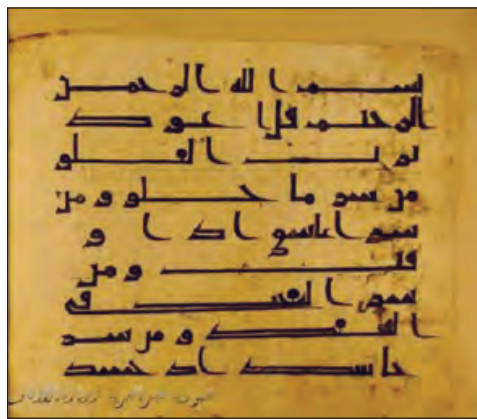 بسم الله الرحمن
الرحيم قل اعوذ
برب الفلق
من شر ما خلق و من
شر غاسق اذا و
قب و من
شر النفثت في
العقد و من شر
حاسد اذا حسد